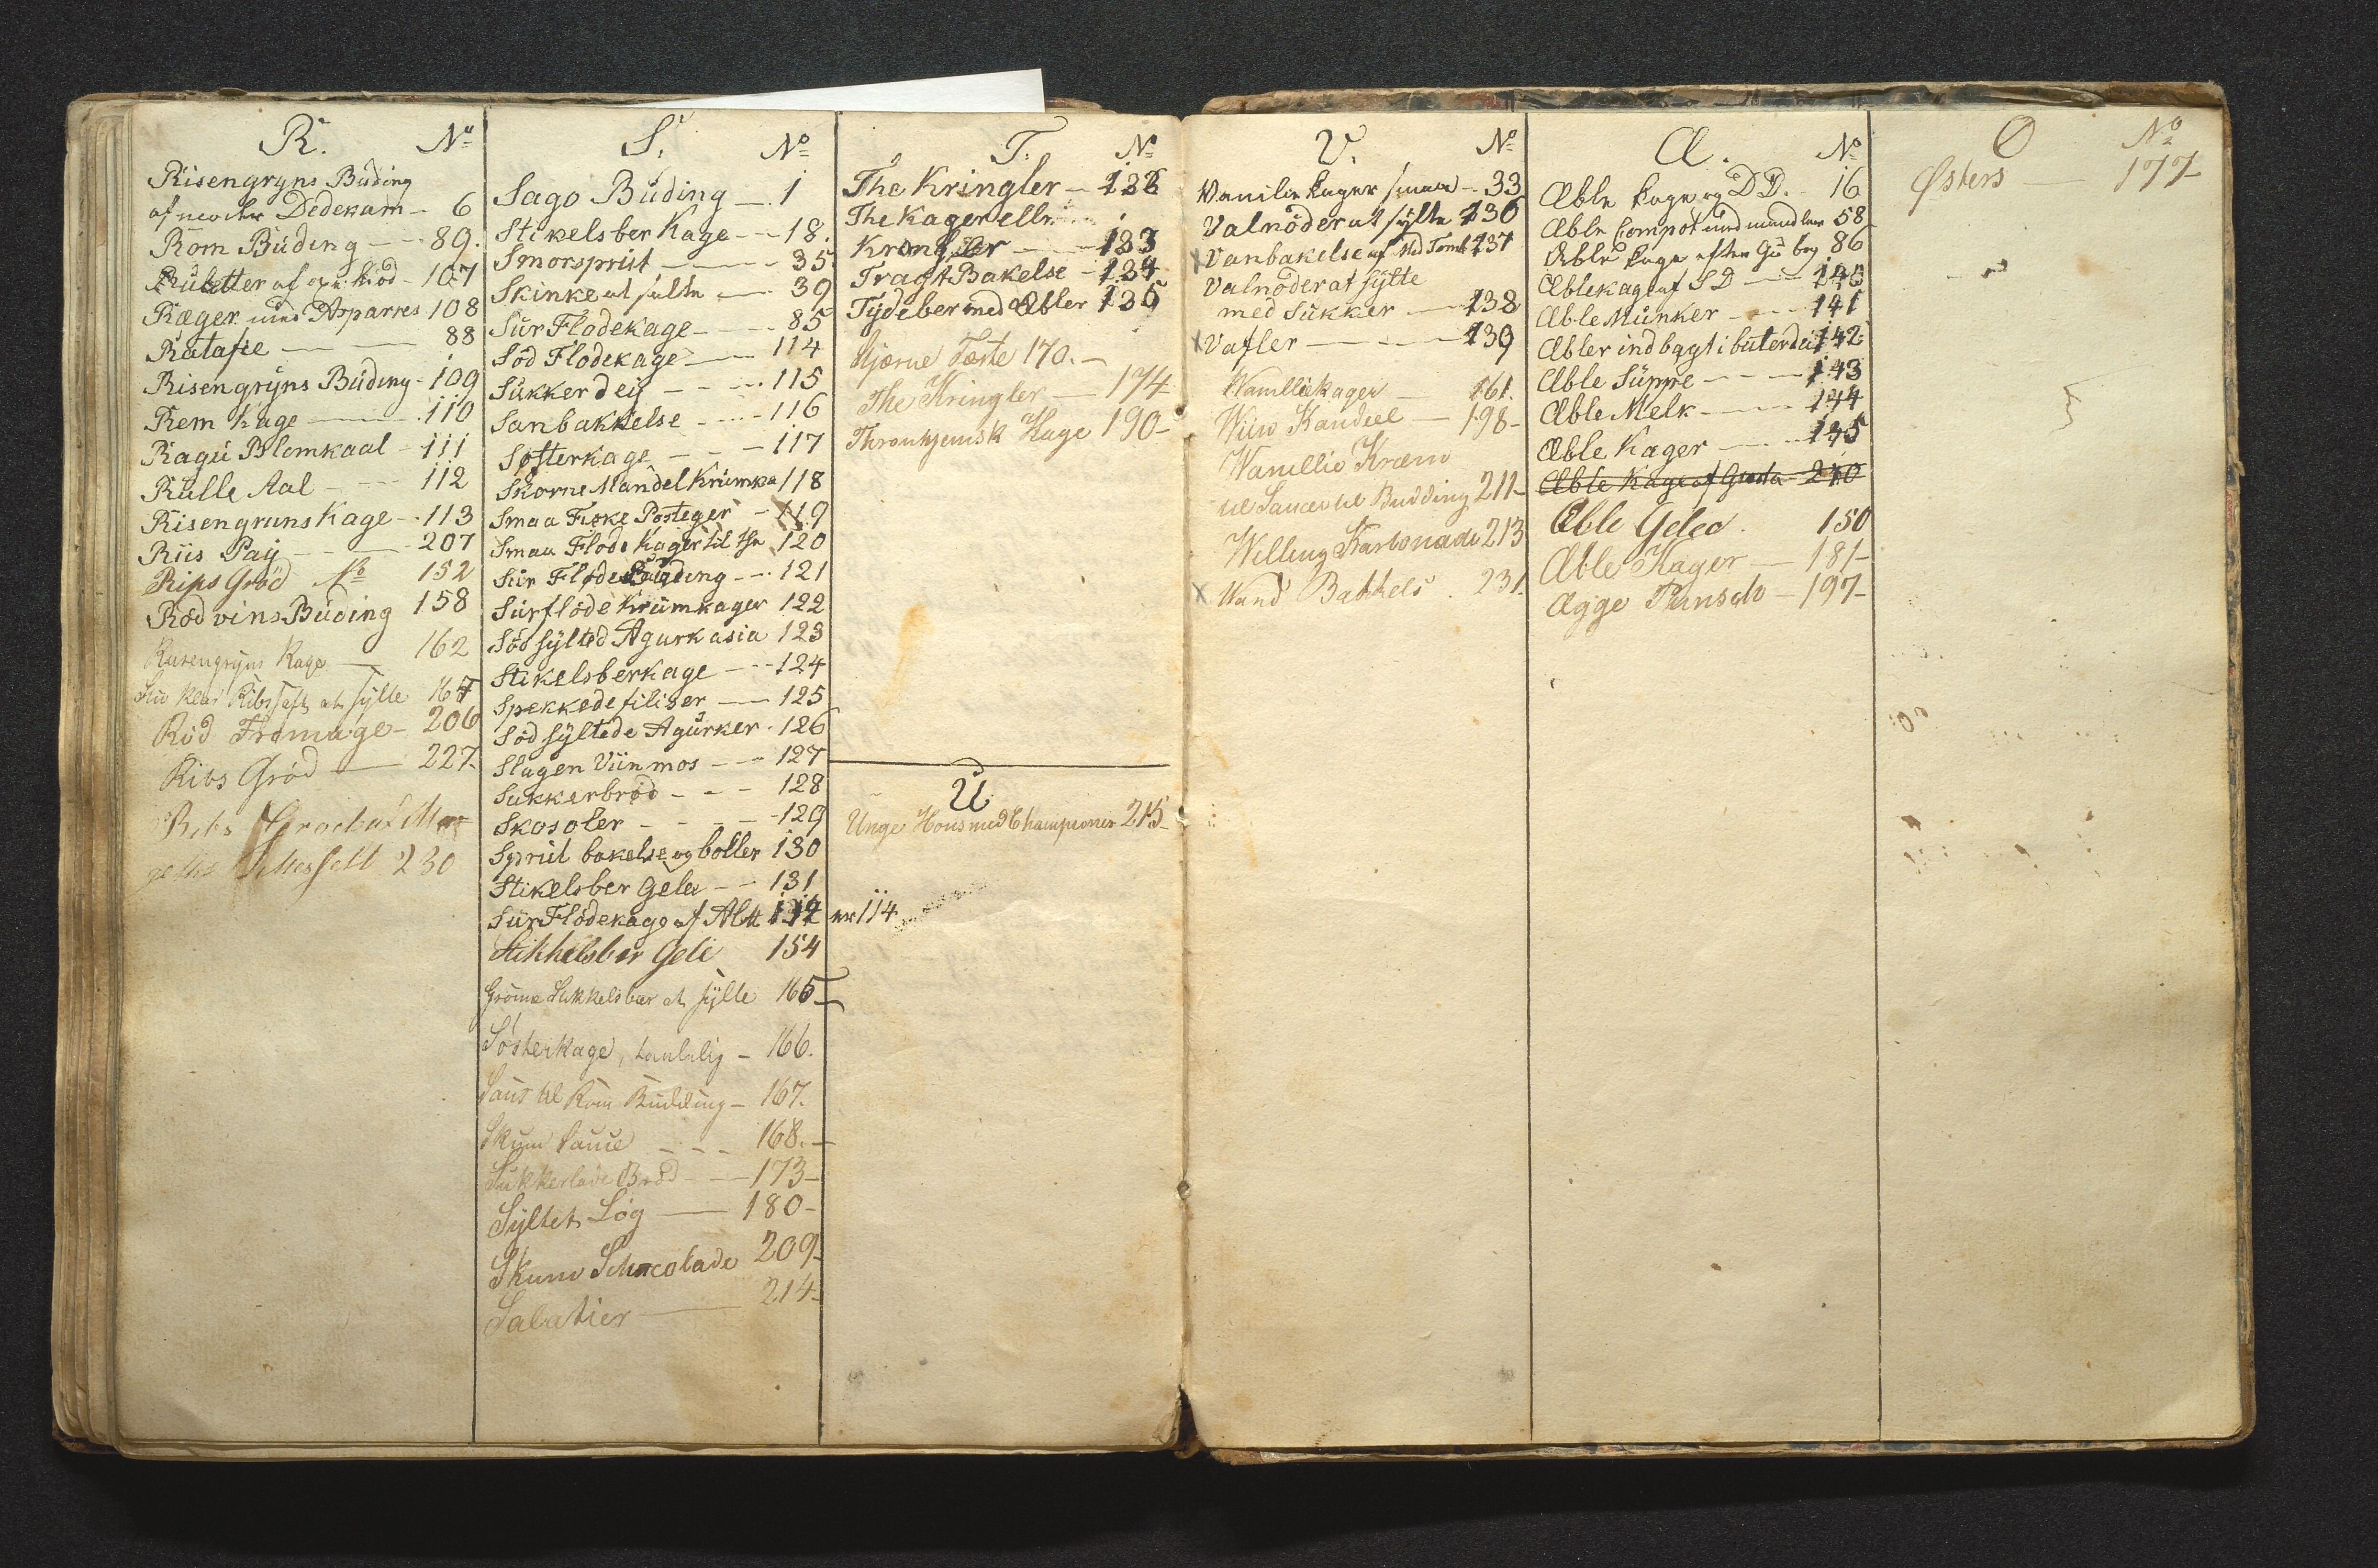 R. No
Risengryns Buding
af Dedekam - 6
Rom Buding - 89.
af kiöd - 107
Ræger med Asparges 108
Ratafie - 88
Risengryns Buding - 109
Rem Kage - 110
Ragu Blomkaal - 111
Rulle Aal - 112
Risengruns Kage - 113
Riis Paij - 207
Rips Gröd No 152
Rödvins Buding 158
Riisengryns Kage - 162
klar Ribssaft at sylte 164
Röd Fromage - 206
Ribs Gröd - 227.
Ribs
230
S. No
Sago Buding - 1
Stikelsber Kage - 18.
Smorsprut - 35
Skinke at salte - 39
Sur Flodekage - 85
Söd Flodekage - 114
Sukker deij - 115
Sanbakkelse - 116
Søsterkage - 117
Skorne Mandel Krumka 118
Smaa Fiske Posteger - 119
Smaa Flode Kager til The 120
Sur Fløde Buding - 121
Surflöde Krumkager 122
Söd sylted Agurk asia 123
Stikelsberkage - 124
Spekkede filiser - 125
Söd syltede Agurker - 126
Slagen Viin mos - 127
Sukkerbröd - 128
Skosoler - 129
Sprut bakelse og boller 130
Stikelsber Gele - 131
Sur Flödekage af Alt 132 er 114
Stikkelsbær Gele 154
Grönne Stikkelsbær at sylte 165
Sösterkage, 166.
Saus til Rom Budding - 167.
Skum Sauce - 168. -
Sukkerlade Bröd - 173 -
Syltet Løg - 180 -
Skum Schocolade 209 -
Salatier - 214 -
T. No
The Kringler - 132
The Kager eller
Kringler - 133
Tragt Bakelse - 134
Tydeber med Æbler 135
Tærte 170. -
The Kringler - 174
Thronhjemsk Kage 190 -
U
Unge Höns med Championer 215 -
V. No
Vanilie kager smaa - 33
Valnöder at sylte 136
X Vanbakelse af Mad 137
Valnöder at sylte
med Sukker - 138
X Vafler - 139
Vanilliekager - 161.
Viin Kandeel - 198 -
Vanillie Kræm
til Sauce til Budding 211 -
Willing Karbonade 213
X Wand Bakkels . 231.
Æ. No
Æble kage og D D. - 16
Æble Compot med mandler 58
Æble kage efter Gü bog 86
Æblekage af S D - 140
Æble Munker - 141
Æbler indbagt i buterdei 142
Æble Suppe - 143
Æble Melk - 144
Æble Kager - 145
Æble Kage af - 210
Æble Gelea . 150
Æble Kager - 181 -
Ægge Punsch - 197 -
Ø No
Østers - 177 -